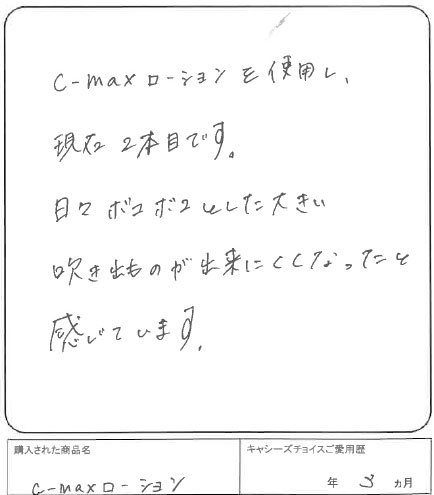 c-maxローションを使用し、
現在2本目です。
日々ボコボコとした大きい
吹き出ものが出来にくくなったと
感じています。
購入された商品名
キャシーズチョイスご愛用歴
c-maxローション
年 3 ヵ月